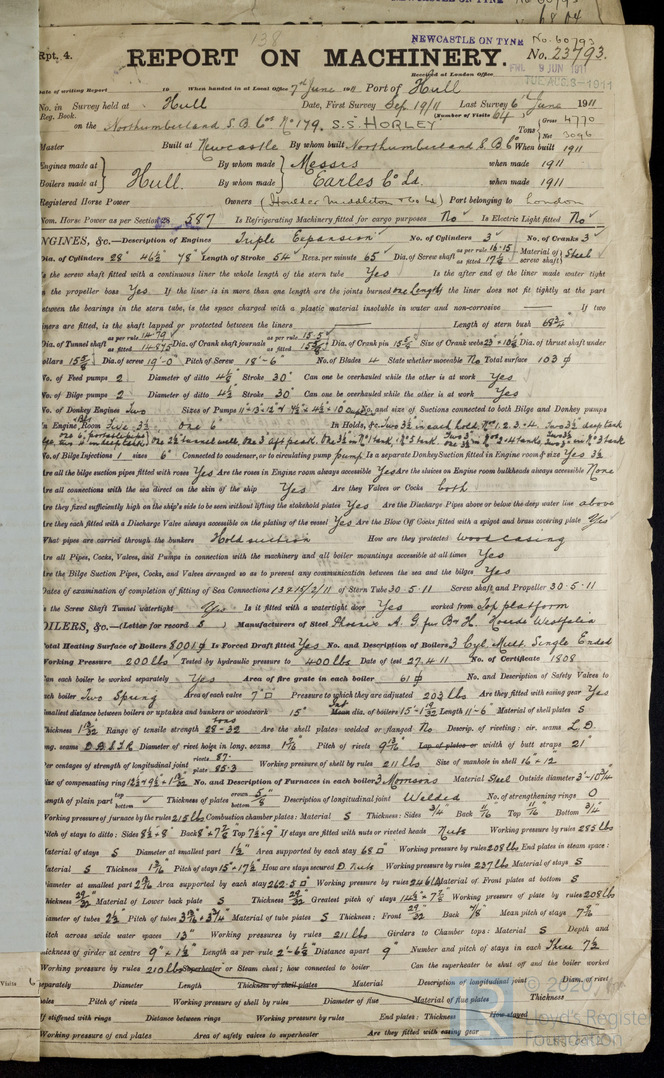 NEWCASTLE ON TYNE No. 60793
Rpt. 4. REPORT ON MACHINERY. No. 23793.
Received at London Office FRI. 9 JUN 1911
TUE. AUG. 8-1911
Date of writing Report 19 When handed in at Local Office 7th June 1911 Port of Hull
No. in Survey held at Hull Date, First Survey Sep 19/11 Last Survey 6th June 1911
Reg. Book. (Number of Visits 64)
on the Northumberland S.B. Cos No 179. S.S. HORLEY Tons Gross 4770 Net 3096
Master Built at Newcastle By whom built Northumberland S.B. Co When built 1911
Engines made at By whom made Messrs when made 1911
Boilers made at Hull. By whom made Earles Co Ld. when made 1911
Registered Horse Power Owners (Houlder Middleton & Co Ld) Port belonging to London
Nom. Horse Power as per Section 28 587 Is Refrigerating Machinery fitted for cargo purposes No Is Electric Light fitted No
ENGINES, &c.—Description of Engines Triple Expansion No. of Cylinders 3 No. of Cranks 3
Dia. of Cylinders 28" 46½" 78" Length of Stroke 54 Revs. per minute 65 Dia. of Screw shaft as per rule 16.15 as fitted 17½ Material of screw shaft Steel
Is the screw shaft fitted with a continuous liner the whole length of the stern tube Yes Is the after end of the liner made water tight
in the propeller boss Yes. If the liner is in more than one length are the joints burned one length If the liner does not fit tightly at the part
between the bearings in the stern tube, is the space charged with a plastic material insoluble in water and non-corrosive If two
liners are fitted, is the shaft lapped or protected between the liners Length of stern bush 65¾"
Dia. of Tunnel shaft as per rule 14.79 as fitted 14.875 Dia. of Crank shaft journals as per rule 15.5 as fitted 15⅝ Dia. of Crank pin 15⅝ Size of Crank webs 23 × 10⅛ Dia. of thrust shaft under
collars 15⅝ Dia. of screw 19'-0" Pitch of Screw 18'-6" No. of Blades 4 State whether moveable No Total surface 103
No. of Feed pumps 2 Diameter of ditto 4½ Stroke 30" Can one be overhauled while the other is at work Yes
No. of Bilge pumps 2 Diameter of ditto 4½ Stroke 30" Can one be overhauled while the other is at work Yes
No. of Donkey Engines Two Sizes of Pumps No. and size of Suctions connected to both Bilge and Donkey pumps
In Engine Room Five 3½ One 6" In Holds, &c. Two 3½ in each hold, Nos 1.2.3.4. Two 3½ deep tank
No. of Bilge Injections 1 sizes 6" Connected to condenser, or to circulating pump Pump Is a separate Donkey Suction fitted in Engine room & size Yes 3½
Are all the bilge suction pipes fitted with roses Yes Are the roses in Engine room always accessible Yes Are the sluices on Engine room bulkheads always accessible None
Are all connections with the sea direct on the skin of the ship Yes Are they Valves or Cocks both
Are they fixed sufficiently high on the ship's side to be seen without lifting the stokehold plates Yes Are the Discharge Pipes above or below the deep water line above
Are they each fitted with a Discharge Valve always accessible on the plating of the vessel Yes Are the Blow Off Cocks fitted with a spigot and brass covering plate Yes
What pipes are carried through the bunkers Hold suction How are they protected Wood casing
Are all Pipes, Cocks, Valves, and Pumps in connection with the machinery and all boiler mountings accessible at all times Yes
Are the Bilge Suction Pipes, Cocks, and Valves arranged so as to prevent any communication between the sea and the bilges Yes
Dates of examination of completion of fitting of Sea Connections of Stern Tube 30.5.11 Screw shaft and Propeller 30.5.11
Is the Screw Shaft Tunnel watertight Yes Is it fitted with a watertight door Yes worked from Top platform
BOILERS, &c.—(Letter for record S) Manufacturers of Steel Phoenix A.G. fur B & H. Hoerde Westfalia
Total Heating Surface of Boilers 8001 Is Forced Draft fitted Yes No. and Description of Boilers 3 Cyl. Mult. Single Ended
Working Pressure 200 lbs Tested by hydraulic pressure to 400 lbs Date of test 27.4.11 No. of Certificate 1808
Can each boiler be worked separately Yes Area of fire grate in each boiler 61 No. and Description of Safety Valves to
each boiler Two Spring Area of each valve 7 Pressure to which they are adjusted 203 lbs Are they fitted with easing gear Yes
Smallest distance between boilers or uptakes and bunkers or woodwork 15" Int Mean dia. of boilers 15'-1 19/32 Length 11-6" Material of shell plates S
Thickness 1 19/32 Range of tensile strength 28-32 tons Are the shell plates welded or flanged No Descrip. of riveting: cir. seams L.D.
long. seams D.B.S.T.R. Diameter of rivet holes in long. seams 1 7/16 Pitch of rivets 9 13/16 Lap of plates or width of butt straps 21"
Per centages of strength of longitudinal joint rivets 87. plate 85.3 Working pressure of shell by rules 211 lbs Size of manhole in shell 16" × 12"
Size of compensating ring No. and Description of Furnaces in each boiler 3 Morrisons Material Steel Outside diameter 3'-10¾"
Length of plain part top bottom Thickness of plates crown bottom 5/8" Description of longitudinal joint Welded No. of strengthening rings 0
Working pressure of furnace by the rules 215 lbs Combustion chamber plates: Material S Thickness: Sides ¾ Back 11/16 Top 11/16 Bottom ¾"
Pitch of stays to ditto: Sides 8½ × 8" Back 8" × 7⅞ Top 7⅞ × 9" If stays are fitted with nuts or riveted heads Nuts Working pressure by rules 285 lbs
Material of stays S Diameter at smallest part 1½" Area supported by each stay 68 Working pressure by rules 208 lbs End plates in steam space:
Material S Thickness 1 3/16 Pitch of stays 15" × 17½ How are stays secured D. Nuts Working pressure by rules 237 lbs Material of stays S
Diameter at smallest part 2 9/16 Area supported by each stay 262.5 Working pressure by rules 246 lbs Material of Front plates at bottom S
Thickness 29/32 Material of Lower back plate S Thickness 29/32 Greatest pitch of stays 14½ × 7⅞ Working pressure of plate by rules 208 lbs
Diameter of tubes 2½ Pitch of tubes 3 9/16 × 3¾" Material of tube plates S Thickness: Front 29/32 Back 11/16 Mean pitch of stays 7⅞"
Pitch across wide water spaces 13" Working pressures by rules 211 lbs Girders to Chamber tops: Material S Depth and
thickness of girder at centre 9" × 1½" Length as per rule 2'-6⅛" Distance apart 9" Number and pitch of stays in each Three 7½
Working pressure by rules 210 lbs Superheater or Steam chest; how connected to boiler Can the superheater be shut off and the boiler worked
separately Diameter Length Thickness of shell plates Material Description of longitudinal joint Diam. of rivet
holes Pitch of rivets Working pressure of shell by rules Diameter of flue Material of flue plates Thickness
If stiffened with rings Distance between rings Working pressure by rules End plates: Thickness How stayed
Working pressure of end plates Area of safety valves to superheater Are they fitted with easing gear
© 2020
Lloyd's Register
Foundation
Visits 6